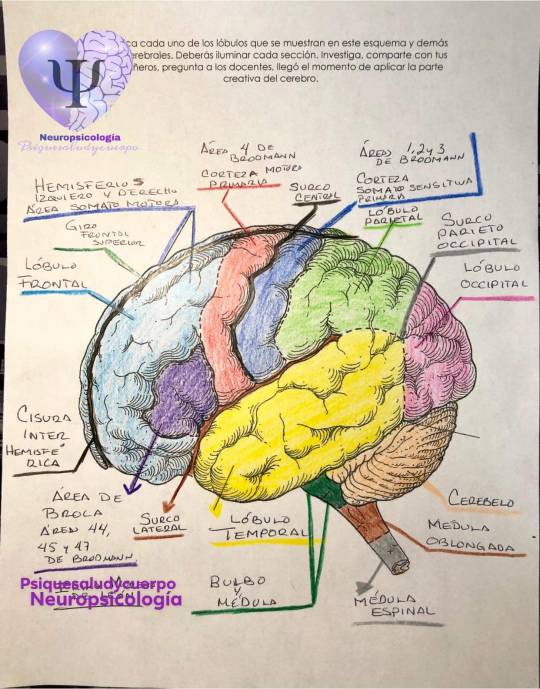 ca cada uno de los lóbulos que se muestran en este esquema y demás
erebrales. Deberás iluminar cada sección. Investiga, comparte con tus
ñeros, pregunta a los docentes, llegó el momento de aplicar la parte
creativa del cerebro.
Ψ
Neuropsicología
Psiquesaludycuerpo
HEMISFERIOS
IZQUIERO Y DERECHO
ÁREA SOMATO MOTORA
GIRO
FRONTAL
SUPERIOR
LÓBULO
FRONTAL
ÁREA 4 DE
BRODMANN
CORTEZA MOTORA
PRIMARIA
SURCO
CENTRAL
ÁREAS 1,2 y 3
DE BRODMAN
CORTEZA
SOMATO SENSITIVA
PRIMARIA
LÓBULO
PARIETAL
SURCO
PARIETO
OCCIPITAL
LÓBULO
OCCIPITAL
CISURA
INTER
HEMISFÉ
RICA
ÁREA DE
BROCA
ÁREA 44,
45 y 47
DE BRODMANN,
SURCO
LATERAL
LÓBULO
TEMPORAL
CEREBELO
MEDULA
OBLONGADA
BULBO
Y
MÉDULA
MÉDULA
ESPINAL
Psiquesaludycuerpo
Neuropsicología